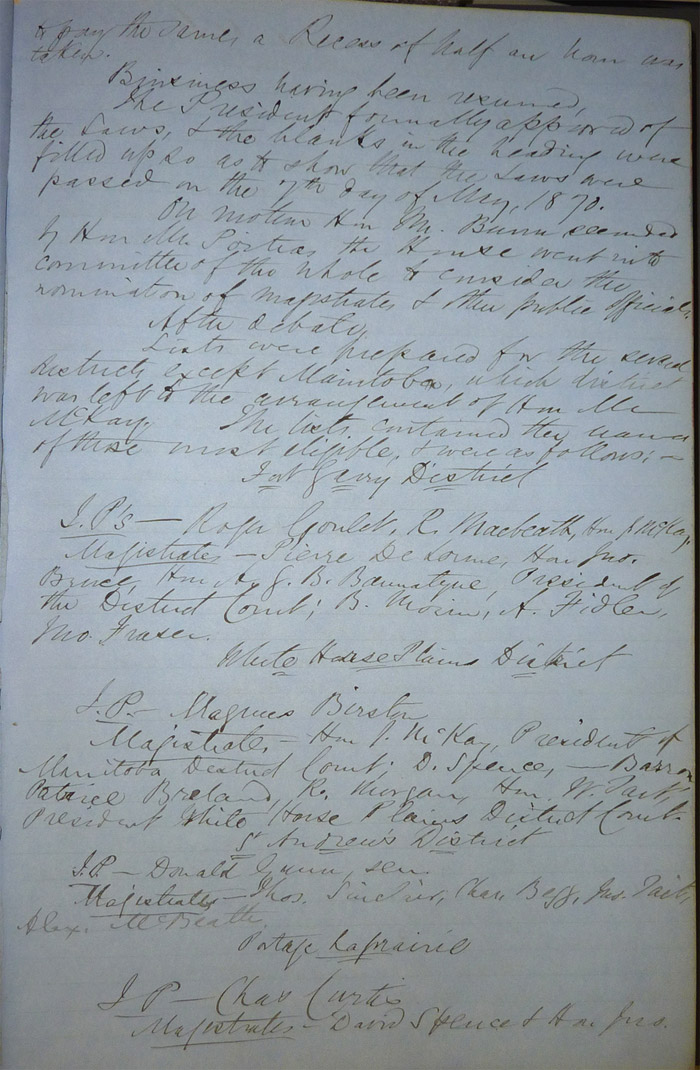 & pay the same, a Recess of half an hour was
taken.
Business having been resumed,
The President formally approved of
the Laws, & the blanks in the heading were
filled up so as to show that the Laws were
passed on the 7th day of May, 1870.
On motion Hon Mr. Bunn seconded
by Hon Mr. Poitras the House went into
committee of the whole to consider the
nomination of magistrates & other public officials.
After debate,
Lists were prepared for the several
districts except Manitoba, which district
was left to the arrangement of Hon Mr
McKay. The lists contained the names
of those most eligible, & were as follows:—
Fort Garry District
J.P's — Roger Goulet, R. Macbeath, Hon J. McKay.
Magistrates — Pierre De Lorme, Hon Jno.
Bruce, Hon A. G. B. Bannatyne, President of
the District Court; B. Morin, A. Fidler,
Jno. Fraser.
White Horse Plains District
J.P. — Magnus Birston
Magistrates — Hon J. McKay, President of
Manitoba District Court: D. Spence, —
Patrice Breland, R. Morgan, Hon. W. Tait,
President White Horse Plains District Court
St Andrew's District
J.P. — Donald Gunn, sen.
Magistrates — Thos. Sinclair, Chas Begg, Jas. Tait,
Alex. McBeath
Portage Laprairie
J P — Chas Curtis
Magistrates — David Spence & Hon Jno.